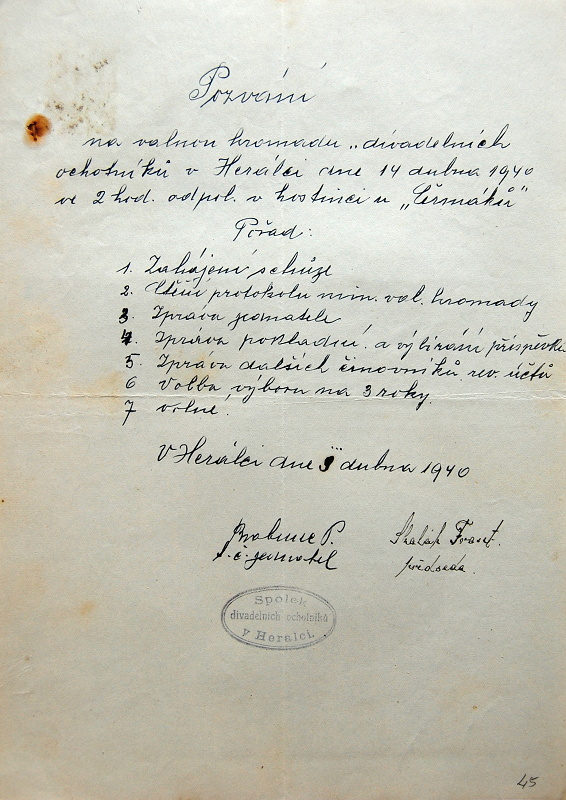 Pozvání
na valnou hromadu „divadelních
ochotníků v Herálci dne 14 dubna 1940
ve 2 hod. odpol. v hostinci u „Čermáků"
Pořad:
1. Zahájení schůze
2. Čtění protokolu min. val. hromady
3. Zpráva jednatele
4. Zpráva pokladní. a vybírání příspěvků
5. Zpráva dalších činovníků rev. účtů
6 Volba výboru na 3 roky.
7 volné.
V Herálci dne 5 dubna 1940
P. Skalák
t. č. jednatel předseda.
Spolek
divadelních ochotníků
v Heralci.
45